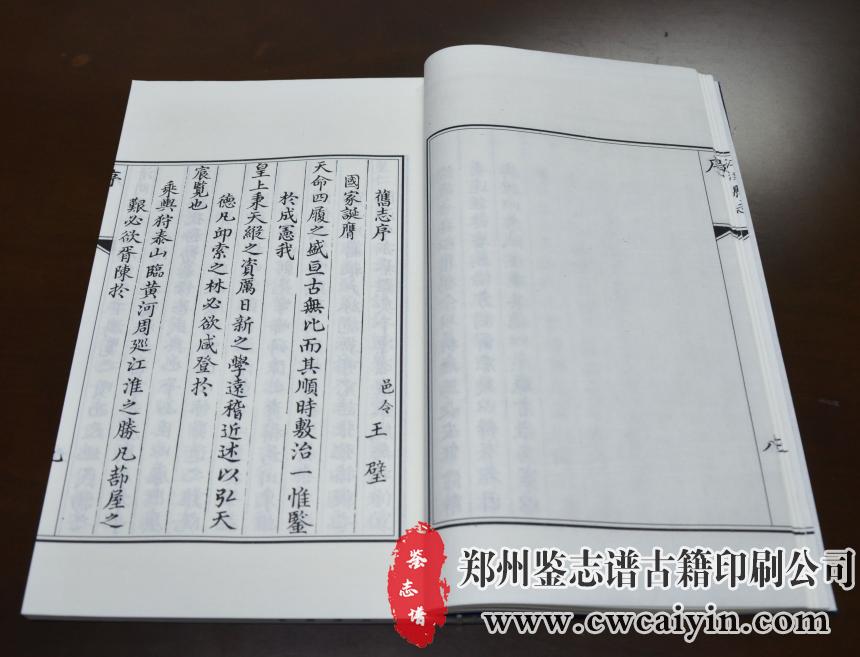 舊志序
邑令王壁
國家誕膺
天命四履之盛亘古無比而其順時敷治一惟鑒
於成憲我
皇上秉天縱之資厲日新之學遠稽近述以弘天
德凡卬索之林必欲咸登於
宸覽也
乘輿狩泰山臨黃河周巡江淮之勝凡蔀屋之
艱必欲胥陳於
序
序
鉴志谱
郑州鉴志谱古籍印刷公司
www.cwcaiyin.com